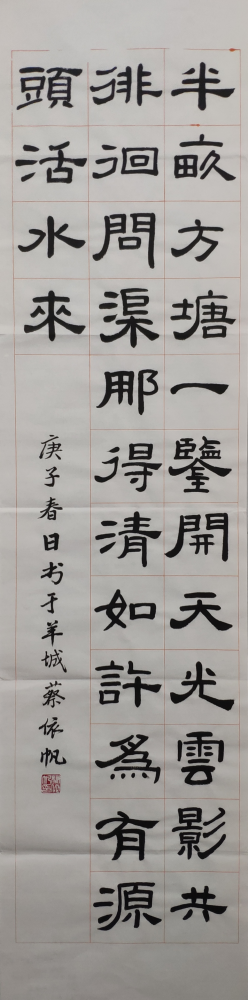 半畝方塘一鑒開天光雲影共
徘徊問渠那得清如許為有源
頭活水來
庚子春日书于羊城蔡依帆